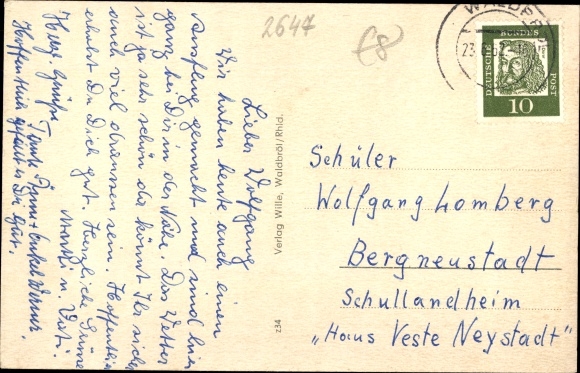 2647
£8
WALDBRÖL
23
62
DEUTSCHE
BUNDES
POST
10
Lieber Wolfgang
Wir haben heute auch einen
Ausflug gemacht und sind hier
ganz bei Dir in der Nähe. Das Wetter
ist ja sehr schön da könnt Ihr sicher
auch viel draussen sein. Hoffentlich
erholst Du Dich gut. Herzliche Grüsse
Mutti u. Vati.
Herzl. Grüße
Tante Änni + Onkel Werner.
Hoffentlich gefällt es Dir gut.
Verlag Wille, Waldbröl/Rhld.
z34
Schüler
Wolfgang Lomberg
Bergneustadt
Schullandheim
„Haus Veste Neystadt"